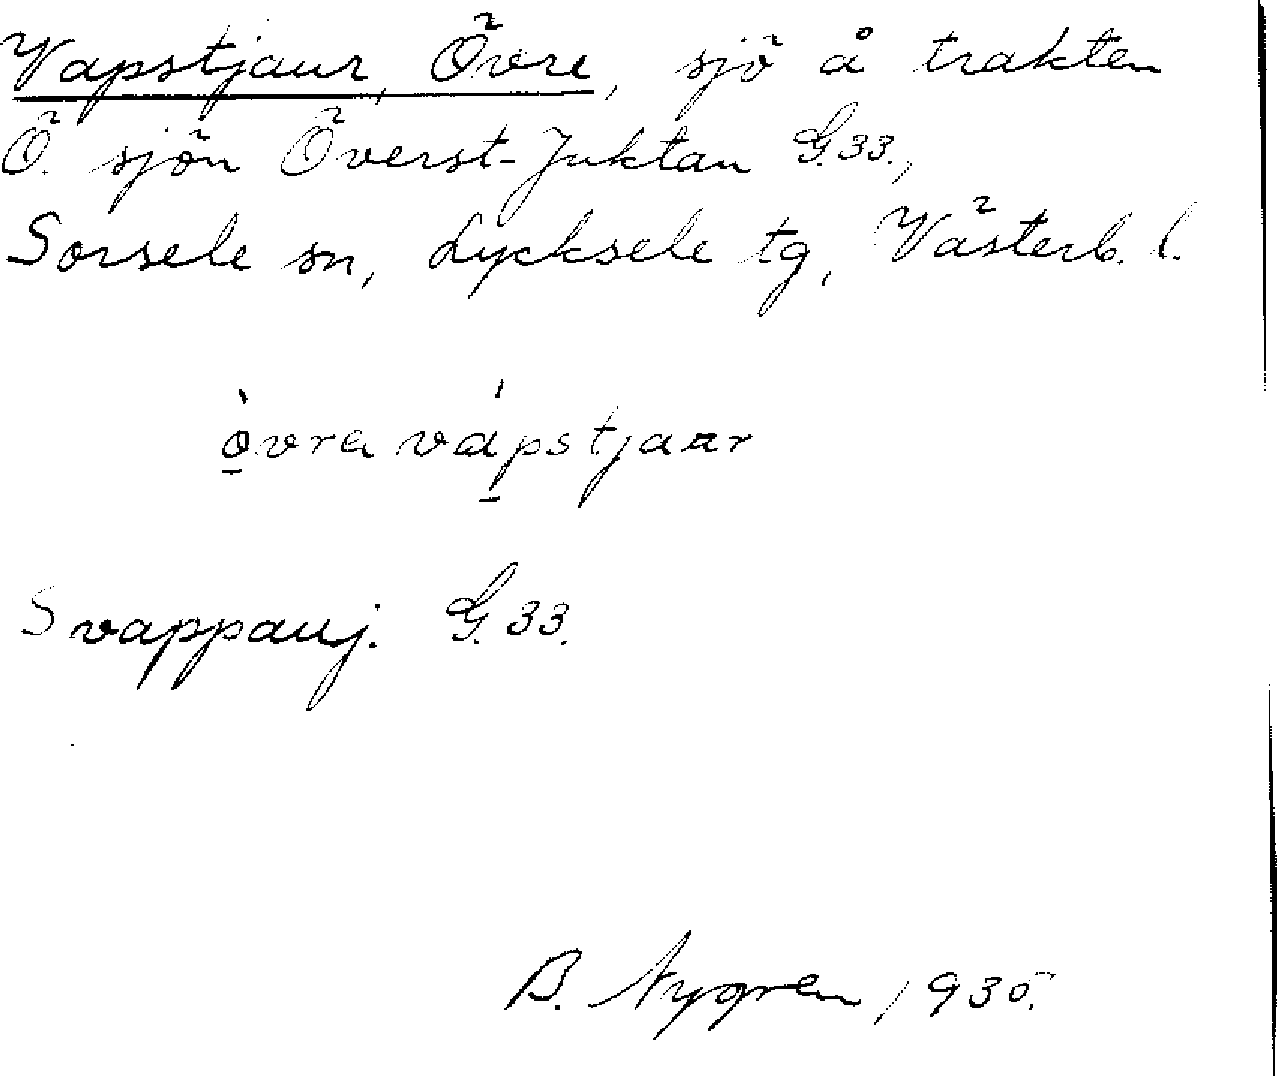 Vapstjaur, Övre, sjö å trakten
Ö. sjön Överst-Juktan G.33.,
Sorsele sn, Lycksele tg, Västerb. l.
ò̠vra vá̠pstjaur
Svappauj. G.33.
B. Nygren 1935.